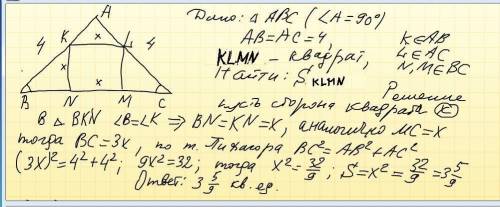 A
4 K x L 4
x x
x
B N M C
Дано: △ ABC (∠A=90°)
AB=AC=4,
KLMN - квадрат,
K∈AB
L∈AC
N,M∈BC
Найти: S KLMN
Решение
Пусть сторона квадрата x
В △ BKN ∠B=∠K ⇒ BN=KN=x, аналогично MC=x
тогда BC=3x, по т. Пифагора BC²=AB²+AC²
(3x)²=4²+4²; 9x²=32; тогда x²=32/9; S=x²=32/9=3 5/9
Ответ: 3 5/9 кв. ед.